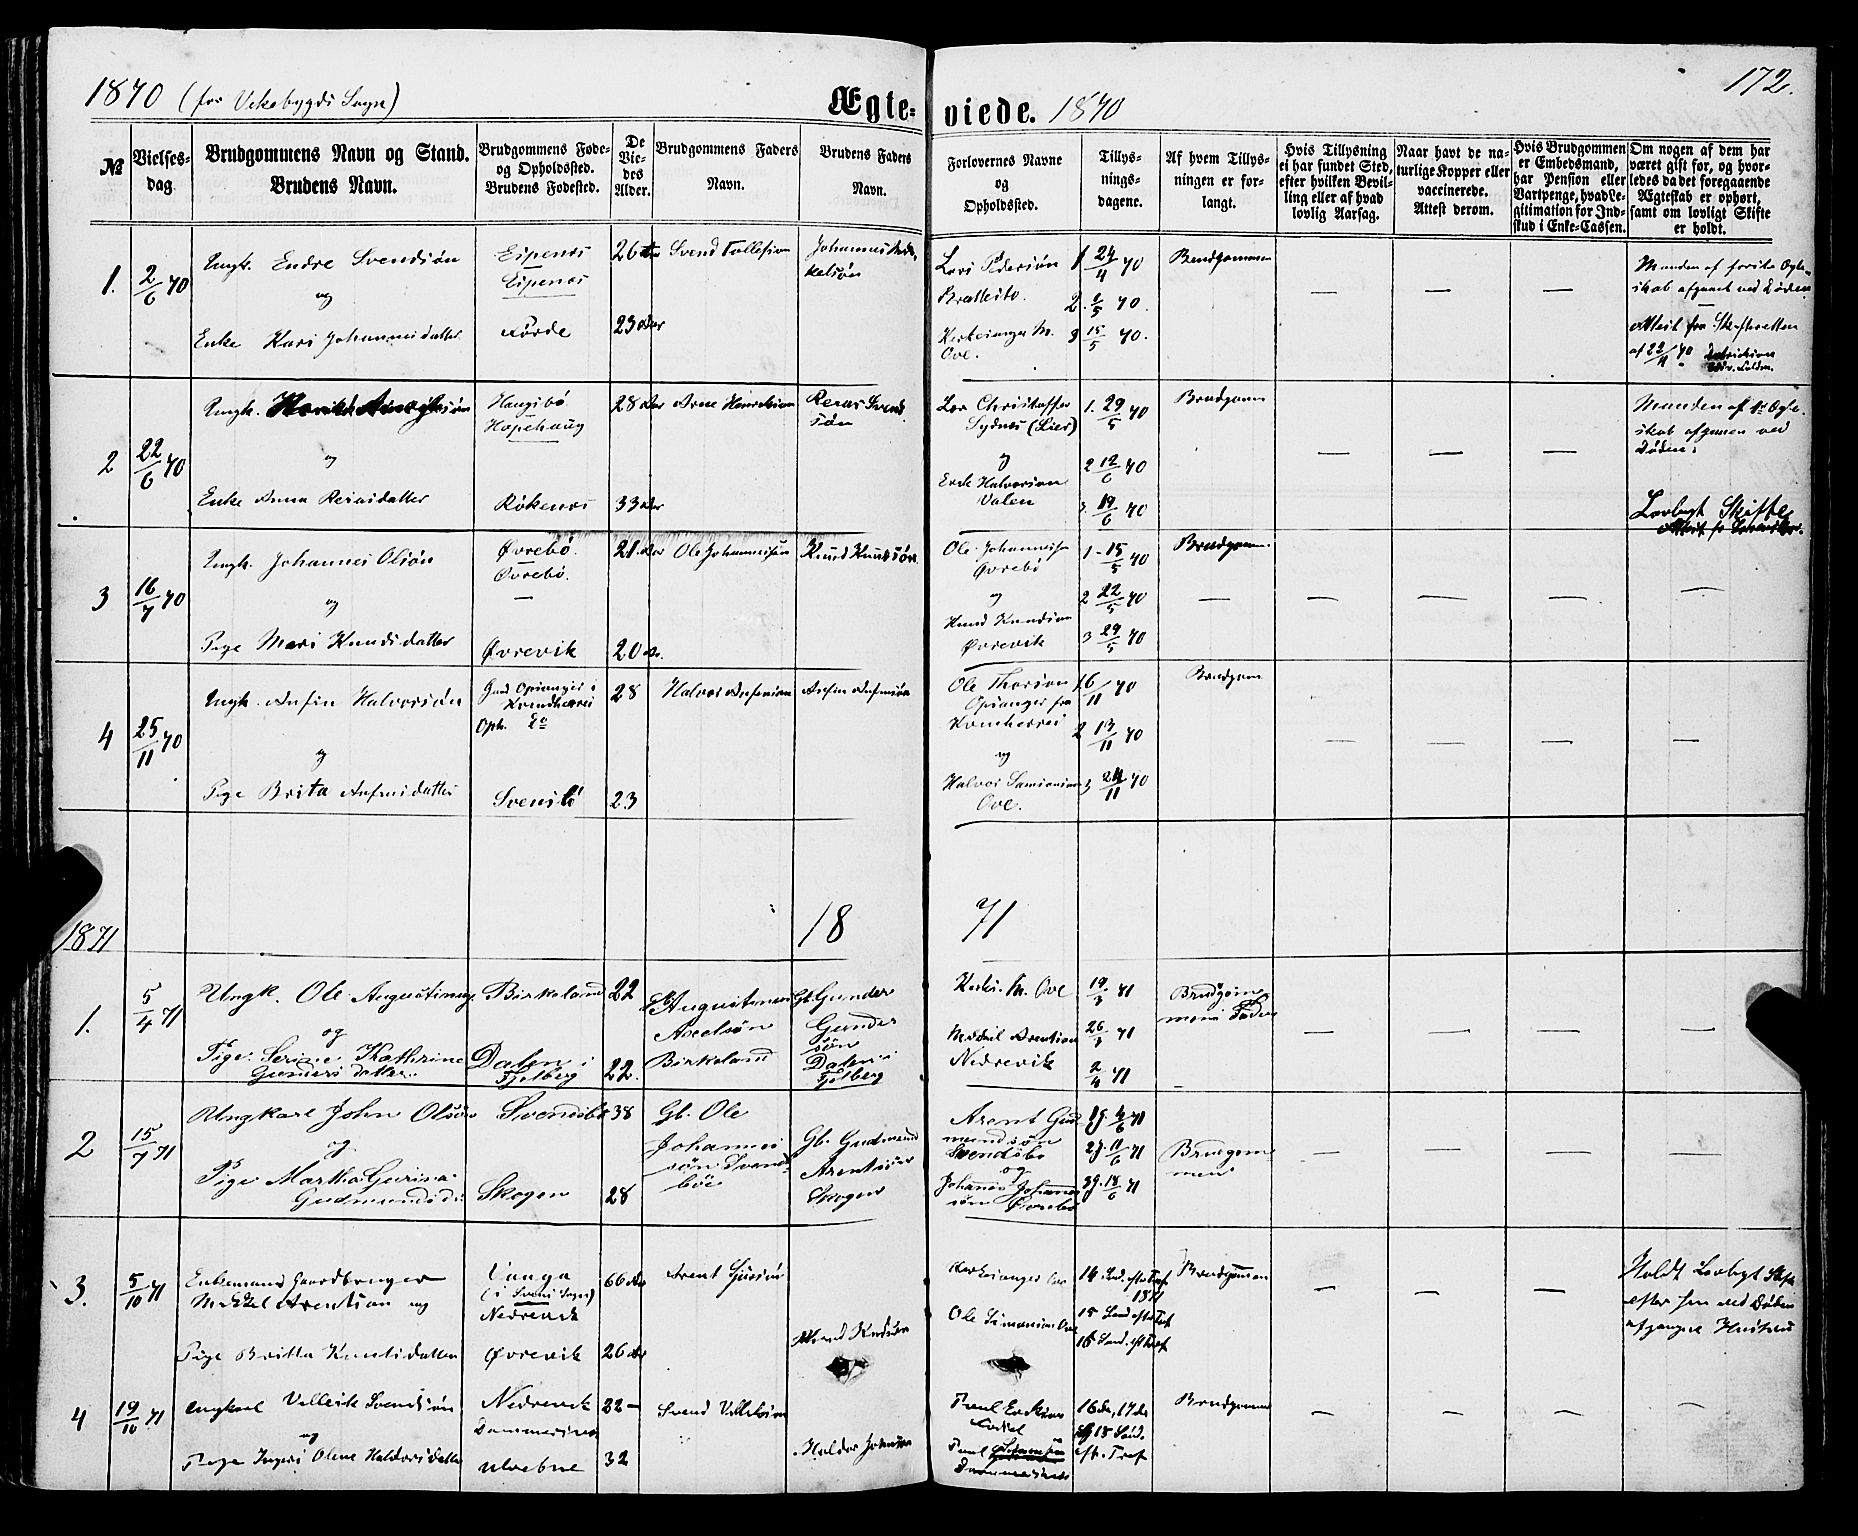 1870 (for Vikebygds Sogn)
Ægte-
viede. 1870
172.
№
Vielses-
dag.
Brudgommens Navn og Stand.
Brudens Navn.
Brudgommens Føde-
og Opholdssted.
Brudens Fødested.
De
Vie-
des
Alder.
Brudgommens Faders
Navn.
Brudens Faders
Navn.
Forlovernes Navne
og
Opholdssted.
Tillys-
nings-
dagene.
Af hvem Tillys-
ningen er for-
langt.
Hvis Tillysning
ei har fundet Sted,
efter hvilken Bevil-
ling eller af hvad
lovlig Aarsag.
Naar havt de na-
turlige Kopper eller
vaccinerede.
Attest derom.
Hvis Brudgommen
er Embedsmand,
har Pension eller
Vartpenge, hvad Le-
gitimation for Ind-
skud i Enke-Cassen.
Om nogen af dem har
været gift før, og hvor-
ledes da det foregaaende
Ægteskab er ophørt,
samt om lovligt Skifte
er holdt.
1. 2/6 70
Ungk. Endre Svendsøn
og
Enke Kari Johannesdatter
Eipenes
Eipenes
Førde
26
23
Svend Tollefsen
Johannes
Lars Pedersøn
Bratteitø.
Kirkesanger M.
Ove.
1 24/4 70
2. 2/5 70.
3 15/5 70.
Brudgommen
— — —
Manden af første Egte-
skab afgaaet ved Døden
Attest fra Skifteretten
af 22/4 70
2 22/6 70
Ungk.
og
Enke Anna Reinsdatter
Haugsbø
Hopehaug
Røkenes
28
33
Arne Henriksen
Svend
søn
Christoffer
Sydnes (Lier)
og
Halvorsen
Valen
1. 29/5 70
2 12/6 70
3. 19/6 70
Brudgom
— — —
Manden af 1ste Egte-
skab afgaaen ved
Døden.
Lovligt Skifte
3 16/7 70
Ungk. Johannes Olsøn
og
Pige Mari Knudsdatter
Øvrebø.
Øvrebø.
—
Øvrevik
21
20
Ole Johannessen
Knud Knudsøn.
Ole Johannessen
Øvrebø
og
Knud Knudsen
Øvrevik
1 - 15/5 70
2 22/5 70
3 29/5 70
Brudgommen.
— — — — —
4 25/11 70
Ungk. Anfin Halvorsøn
og
Pige Brita Anfinsdatter
Opsanger i
Kvindherred
Oph. do
Svensbø
28
23
Halvor Anfinsen
Anfin Anfinsøn
Ole Thorsen
Opsanger fra
Kvinherred
og
Halvor Samsonsen
Ove.
1 6/11 70
2 13/11 70
3 20/11 70
Brudgom
— — — —
1871
18 71
1. 5/4 71
Ungk. Ole Augustinus
og
Pige. Serine Kathrine
Gundersdatter.
Birkeland
Dalen i
Fjelberg
22
22.
Augustinus
Axelsøn
Birkeland
Gb. Gunder
Gunder
søn
Dalen i
Fjelberg
Kirkes. M. Ove
Mikkel Arentsen
Nedrevik
19/3 71
26/3 71
2/4 71
Brudgom
mens Fader
— — — —
2 15/7 71
Ungkarl John Olsøn
og
Pige Martha Gurina
Gudmundsd.
Svendsbø
Skogen
38
28
Gb. Ole
Johannes
søn Svends-
bøe
Gb. Gudmund
Arentsøn
Skogen
Arent Gud
mundsøn
Svendsbø
og
Johannes Johannes
søn Øvrebø
1g. 4/6 71
2g. 11/6 71
3g. 18/6 71
Brudgom
men
— — — —
3. 5/10 71
Enkemand Gaardbruger
Mikkel Arentsen og
Pige Britta Knutsdatter
Vaage
(i Sveens Sogn)
Nedrevik
Øvrevik
66
26
Arent
Knud Knudsen
Kirkesanger Ove
Ole Simonsen Ove
14 Sønd. eft. Tref
1871
15 Sønd. eft. Tref
16 Sønd. eft. Tref
Brudgommen
— — —
Holdt Lovligt Skifte
efter hin ved Døden
afgangne Hustru
4 19/10 71
Ungkarl Villeik Svendsøn
og
Pige Ingeri Olene Haldorsdatter
Nedrevik
Dommersnes
22 -
32
Svend Villiksen
Haldor Johnsen
Poul
Poul
Dommersnes
16de, 17de
og 18 Sønd.
eft. Tref
Brudgommen
— — — —